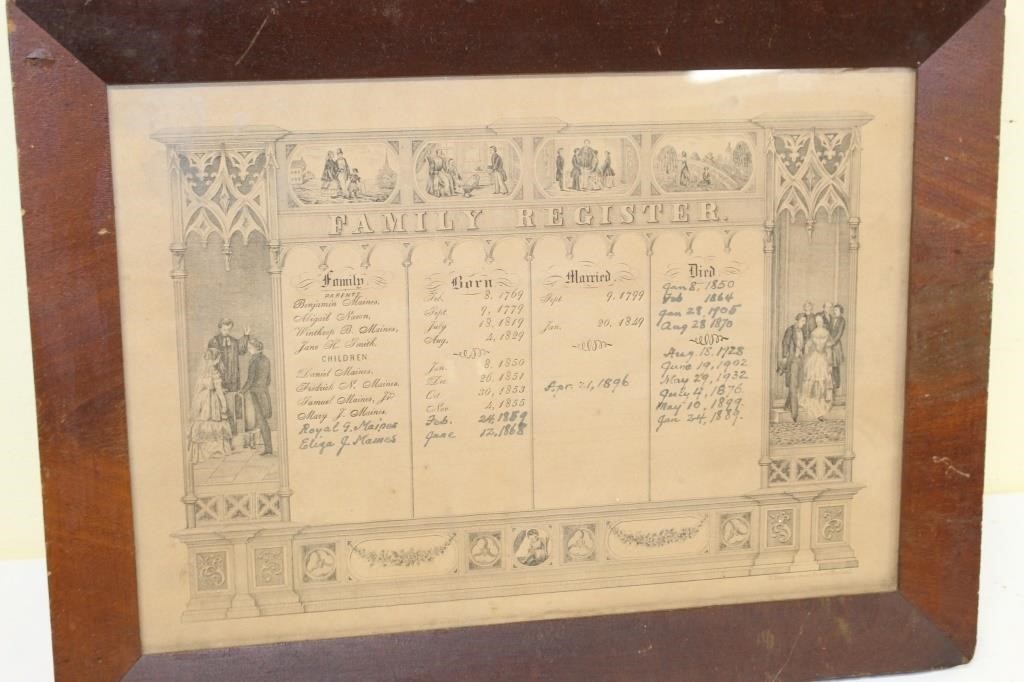 FAMILY REGISTER.
Family Born Married Died
PARENTS
Benjamin Maines, Feb. 8, 1769 Sept. 9, 1799 Jan 8, 1850
Abigail Nason, Sept. 9, 1779 Feb 1864
Winthrop B. Maines, July 18, 1819 Jan. 20, 1849 Jan 28, 1905
Jane H. Smith. Aug. 4, 1829 Aug 28 1870
CHILDREN
Daniel Maines, Jan. 8. 1850 Aug. 15, 1928
Fredrick N. Maines, Dec. 26, 1851 June 19, 1902
Samuel Maines, Jr Oct 30, 1853 Apr. 21, 1896 May 29, 1932
Mary J. Maines Nov 4, 1855 July 4, 1876
Royal G. Maines Feb. 24, 1859 May 10, 1899.
Eliza J. Maines June 12, 1868 Jan 24, 1889.